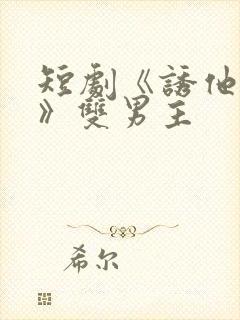 短劇《誘他
》雙男主
希尔